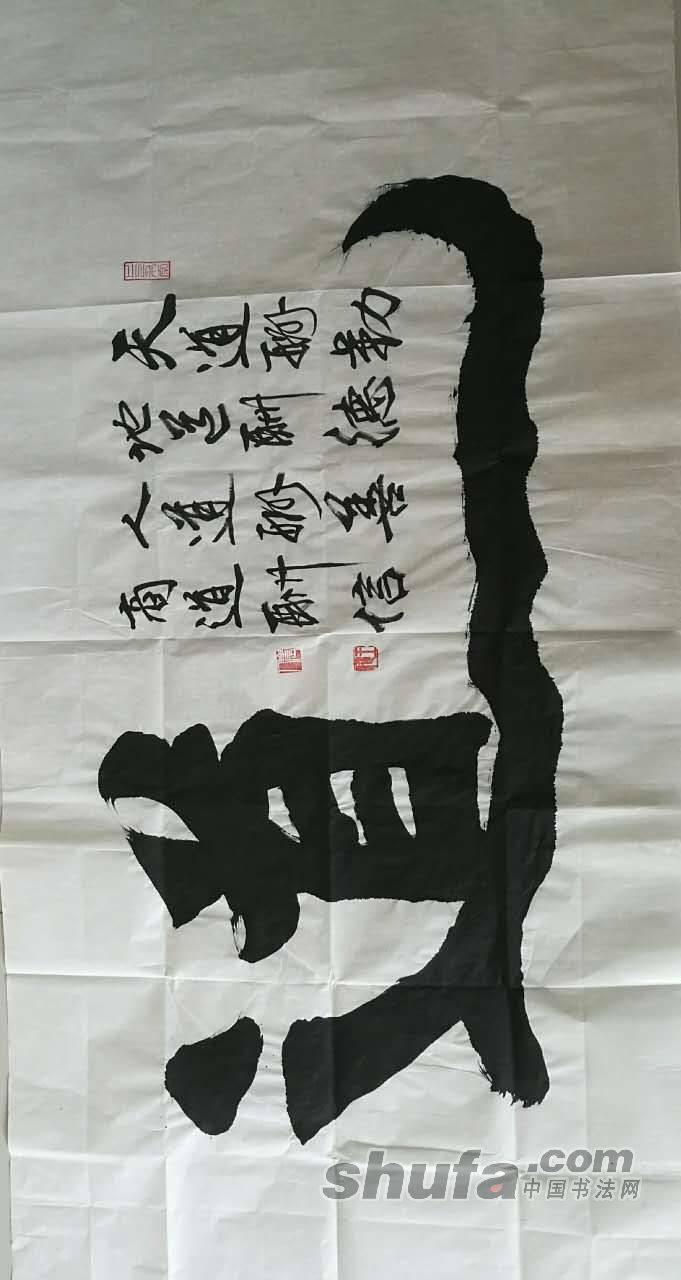 道
天道酬勤
地道酬德
人道酬善
商道酬信
shufa.com
中国书法网